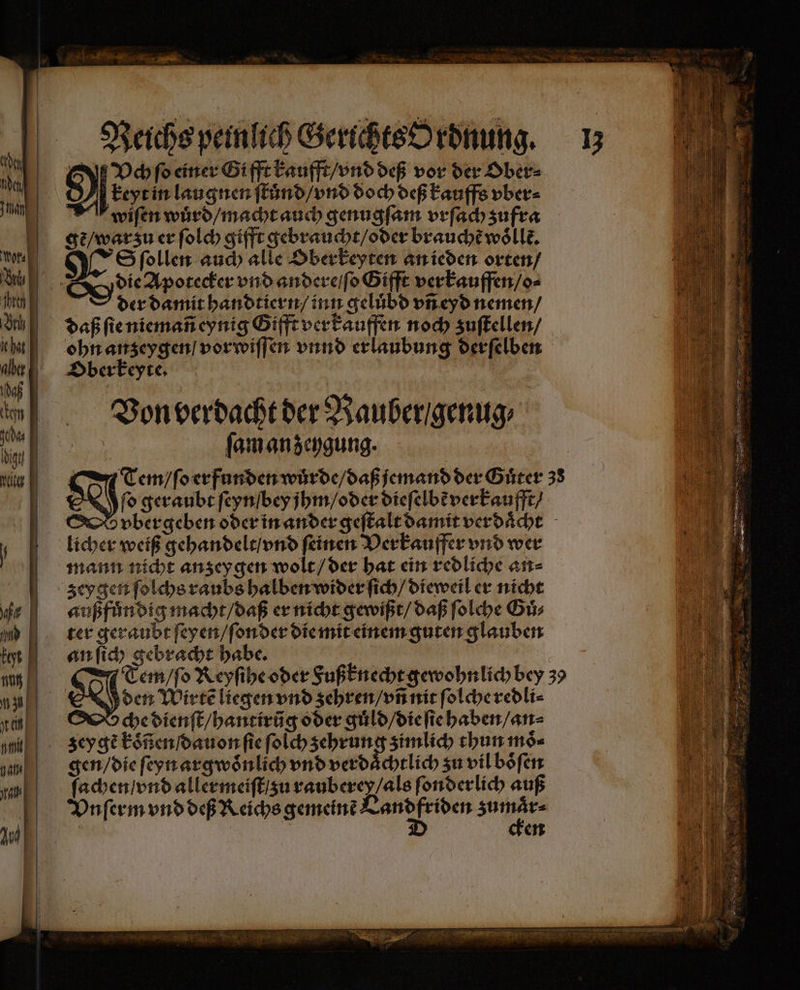 Reichs peinlich GerichtsOrdnung. 13
AVch ſo einer Gifft kaufft/vnd deß vor der Ober⸗
keyt in laugnen ſtuͤnd/vnd doch deß kauffs vber⸗
wiſen wuͤrd/macht auch genugſam vrſach zufra
gẽ/war zu er ſolch gifft gebraucht/oder brauchẽ woͤllẽ.
ES ſollen auch alle Oberkeyten an ieden orten/
die Apotecker vnd andere/ſo Gifft verkauffen/o⸗
der damit handtiern/inn geluͤbd vñ eyd nemen/
daß ſie niemañ eynig Gifft verkauffen noch zuſtellen/
ohn anzeygen/vorwiſſen vnnd erlaubung derſelben
Oberkeyte.
Von verdacht der Rauber/genug⸗
ſam anzeygung.
ITem/ſo erfunden wuͤrde/daß jemand der Guͤter 38
ſo geraubt ſeyn/bey jhm/oder dieſelbẽ verkaufft/
vbergeben oder in ander geſtalt damit verdaͤcht
licher weiß gehandelt/vnd ſeinen Verkauffer vnd wer
mann nicht anzeygen wolt/der hat ein redliche an⸗
zeygen ſolchs raubs halben wider ſich/dieweil er nicht
außfuͤndig macht/daß er nicht gewißt/daß ſolche Guͤ⸗
ter geraubt ſeyen/ſonder die mit einem guten glauben
an ſich gebracht habe.
ITem/ſo Reyſihe oder Fußknecht gewohnlich bey 39
den Wirtẽ liegen vnd zehren/vñ nit ſolche redli⸗
che dienſt/hantirũg oder guͤld/die ſie haben/an⸗
zeygẽ koͤñen/dauon ſie ſolch zehrung zimlich thun moͤ⸗
gen/die ſeyn argwoͤnlich vnd verdaͤchtlich zu vil boͤſen
ſachen/vnd allermeiſt/zu rauberey/als ſonderlich auß
Vnſerm vnd deß Reichs gemeinẽ Landfriden zumaͤr⸗
D cken